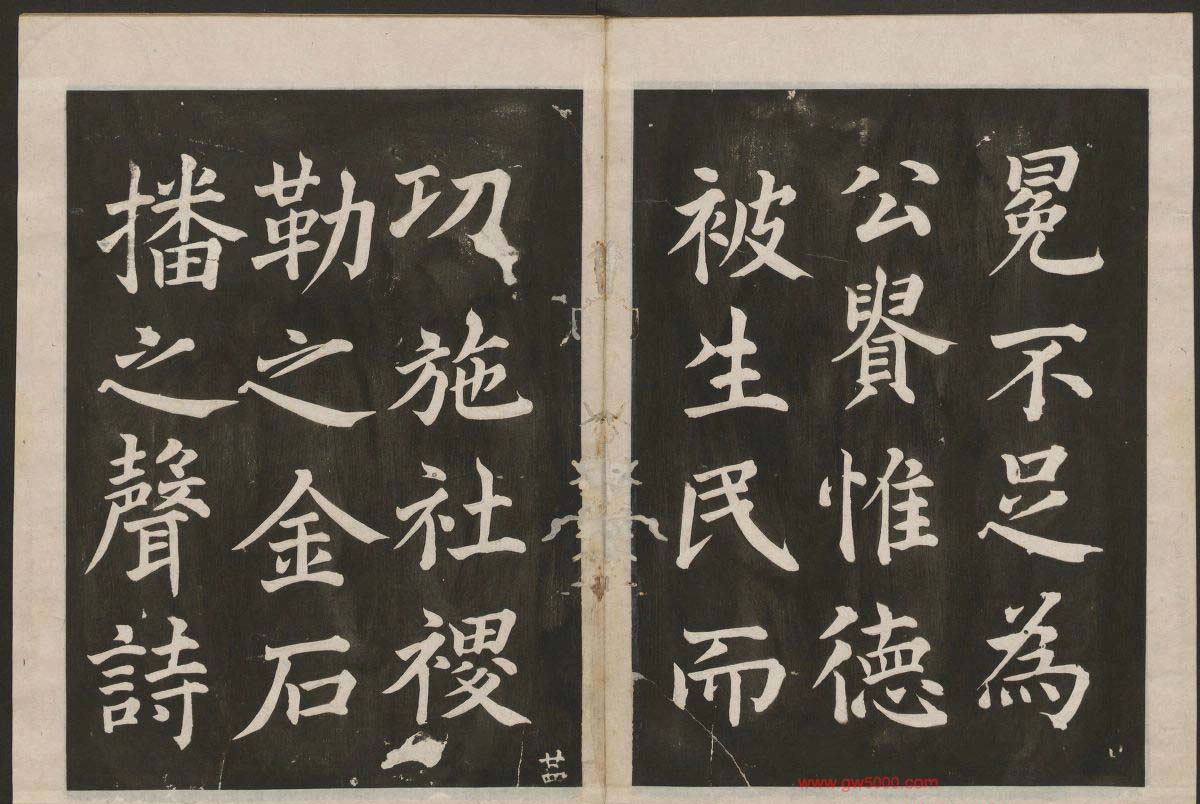 冕不足為
公貴惟德
被生民而
功施社稷
勒之金石
播之聲詩
廿四
www.gw5000.com